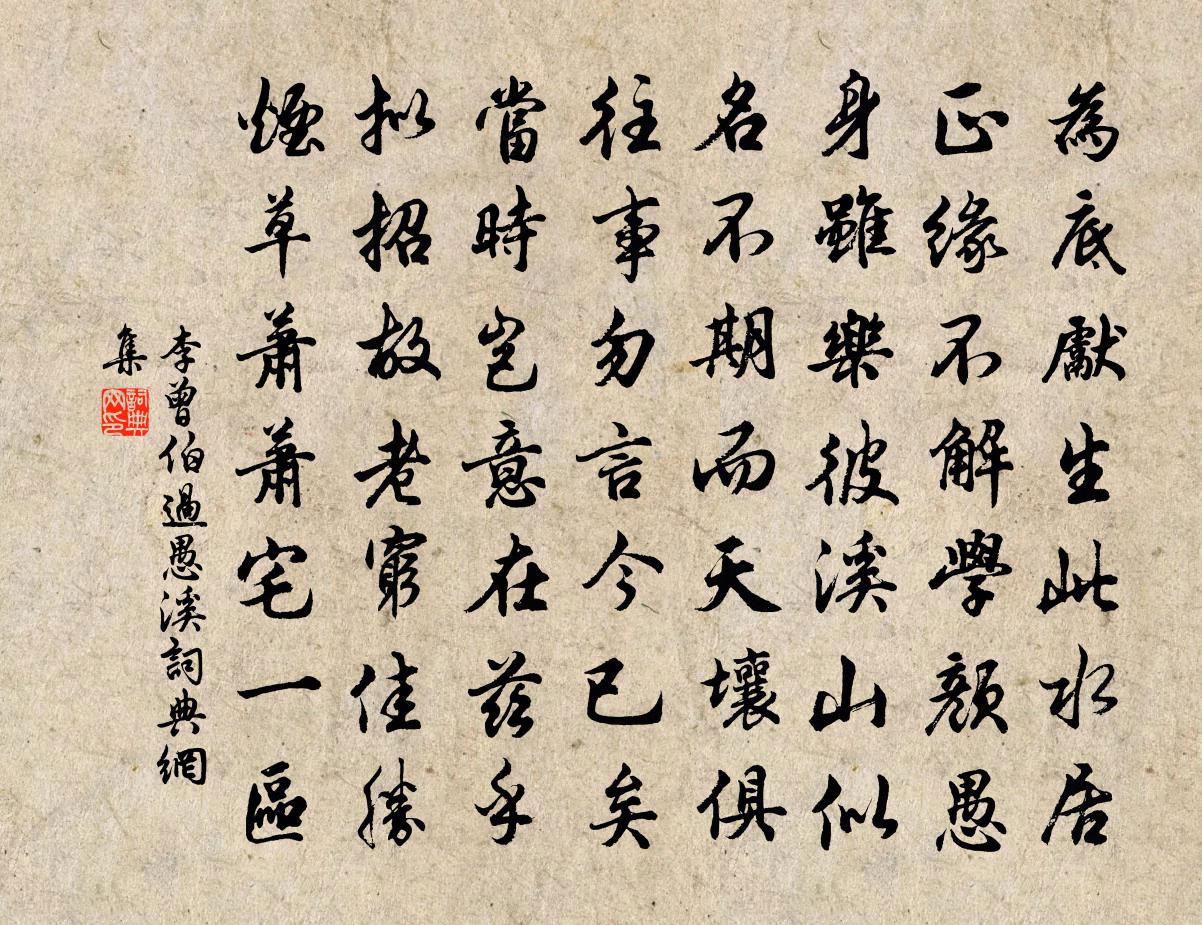 為底獻生此水居
正緣不解學顏愚
身雖樂彼溪山似
名不期而天壤俱
往事勿言今已矣
當時豈意在茲乎
擬招故老窮佳勝
煙草萧萧宅一區
李曾伯過愚溪詞典網
集
詞典
网印